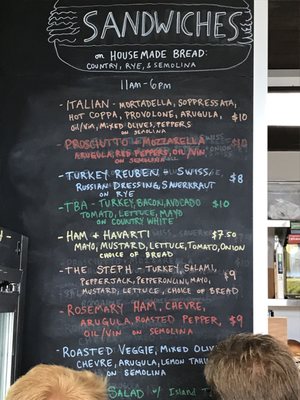 SANDWICHES
on HOUSEMADE BREAD:
COUNTRY, RYE, & SEMOLINA
11AM-6PM
- ITALIAN - MORTADELLA, SOPPRESSATA,
HOT COPPA, PROVOLONE, ARUGULA, $10
OIL/VIN, MIXED OLIVES, PEPPERS
ON SEMOLINA
- PROSCIUTTO + MOZZARELLA $10
ARUGULA, RED PEPPERS, OIL/VIN
ON SEMOLINA
- TURKEY REUBEN - SWISS,
RUSSIAN DRESSING, SAUERKRAUT $8
ON RYE
- TBA - TURKEY, BACON, AVOCADO $10
TOMATO, LETTUCE, MAYO
ON COUNTRY WHITE
- HAM & HAVARTI $7.50
MAYO, MUSTARD, LETTUCE, TOMATO, ONION
CHOICE OF BREAD
- THE STEPH - TURKEY, SALAMI, $9
PEPPERJACK, PEPPERONCINI, MAYO,
MUSTARD, LETTUCE, CHOICE OF BREAD
- ROSEMARY HAM, CHEVRE,
ARUGULA, ROASTED PEPPER, $9
OIL/VIN ON SEMOLINA
- ROASTED VEGGIE, MIXED OLIVE
CHEVRE, ARUGULA, LEMON TAHINI
ON SEMOLINA
SALAD w/ ISLAND